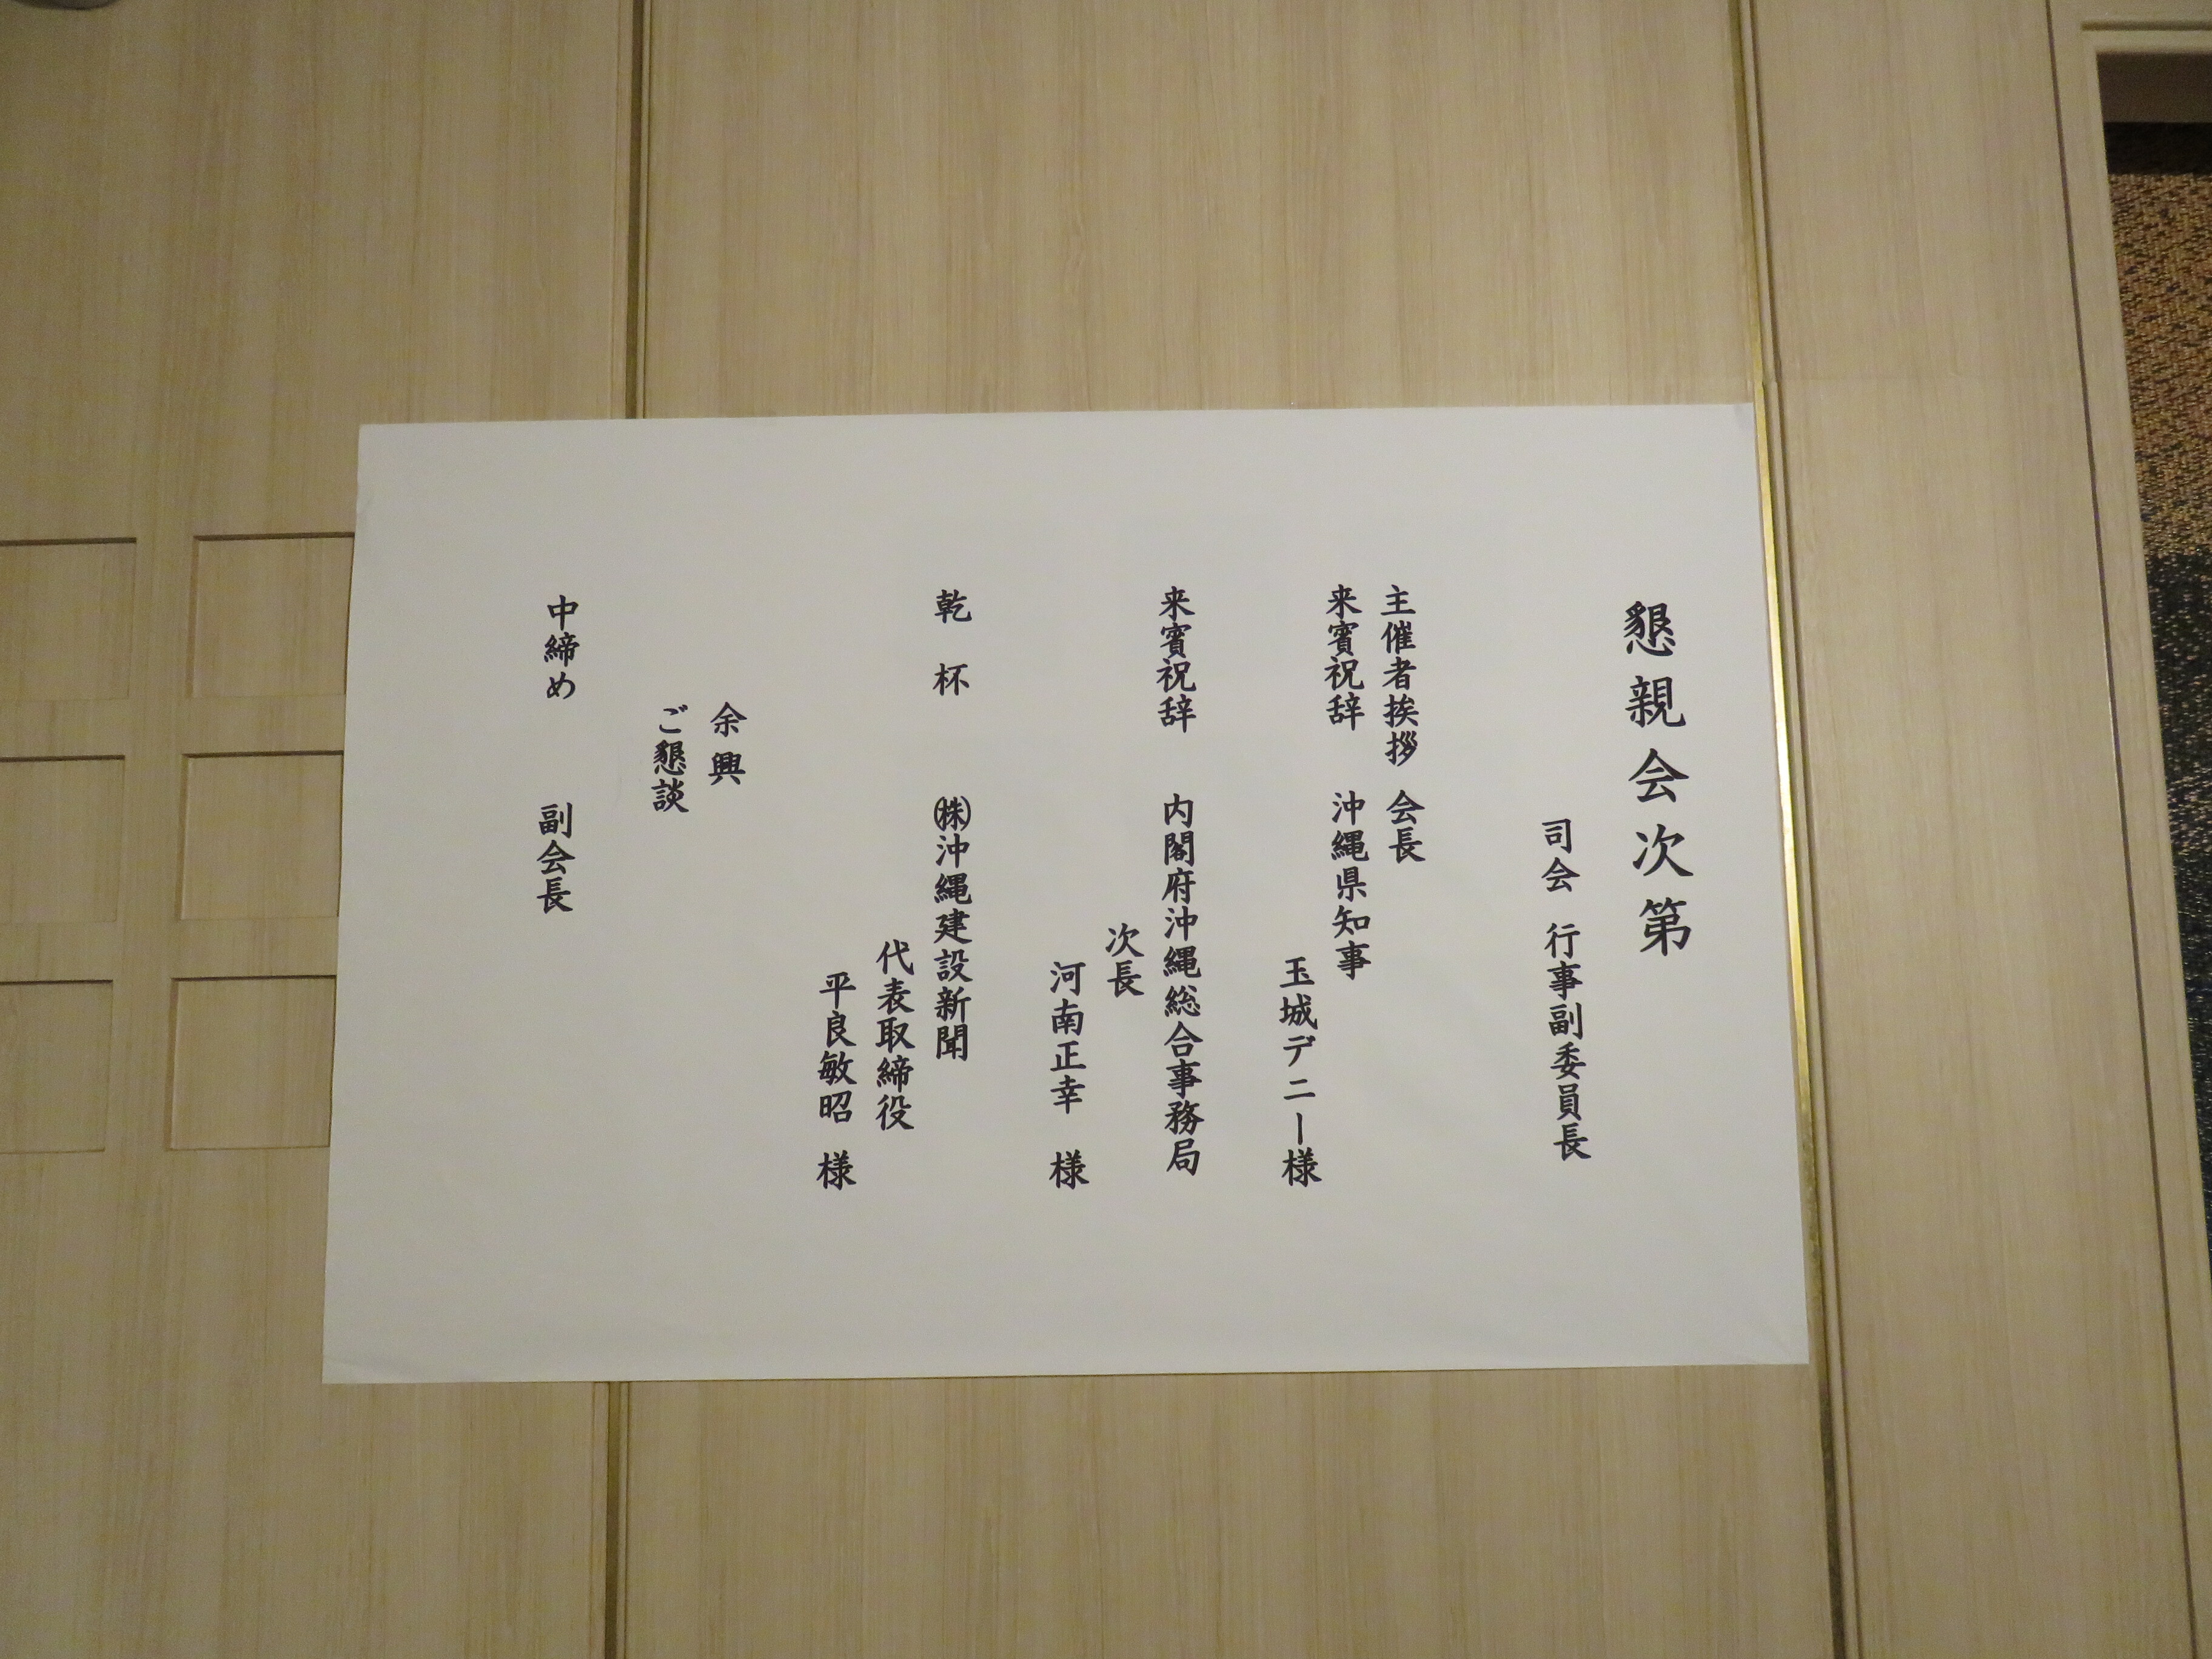 懇親会次第
司会 行事副委員長
主催者挨拶 会長
来賓祝辞 沖縄県知事
玉城デニー様
来賓祝辞 内閣府沖縄総合事務局
次長
河南正幸 様
乾 杯 ㈱沖縄建設新聞
代表取締役
平良敏昭 様
余興
ご懇談
中締め 副会長